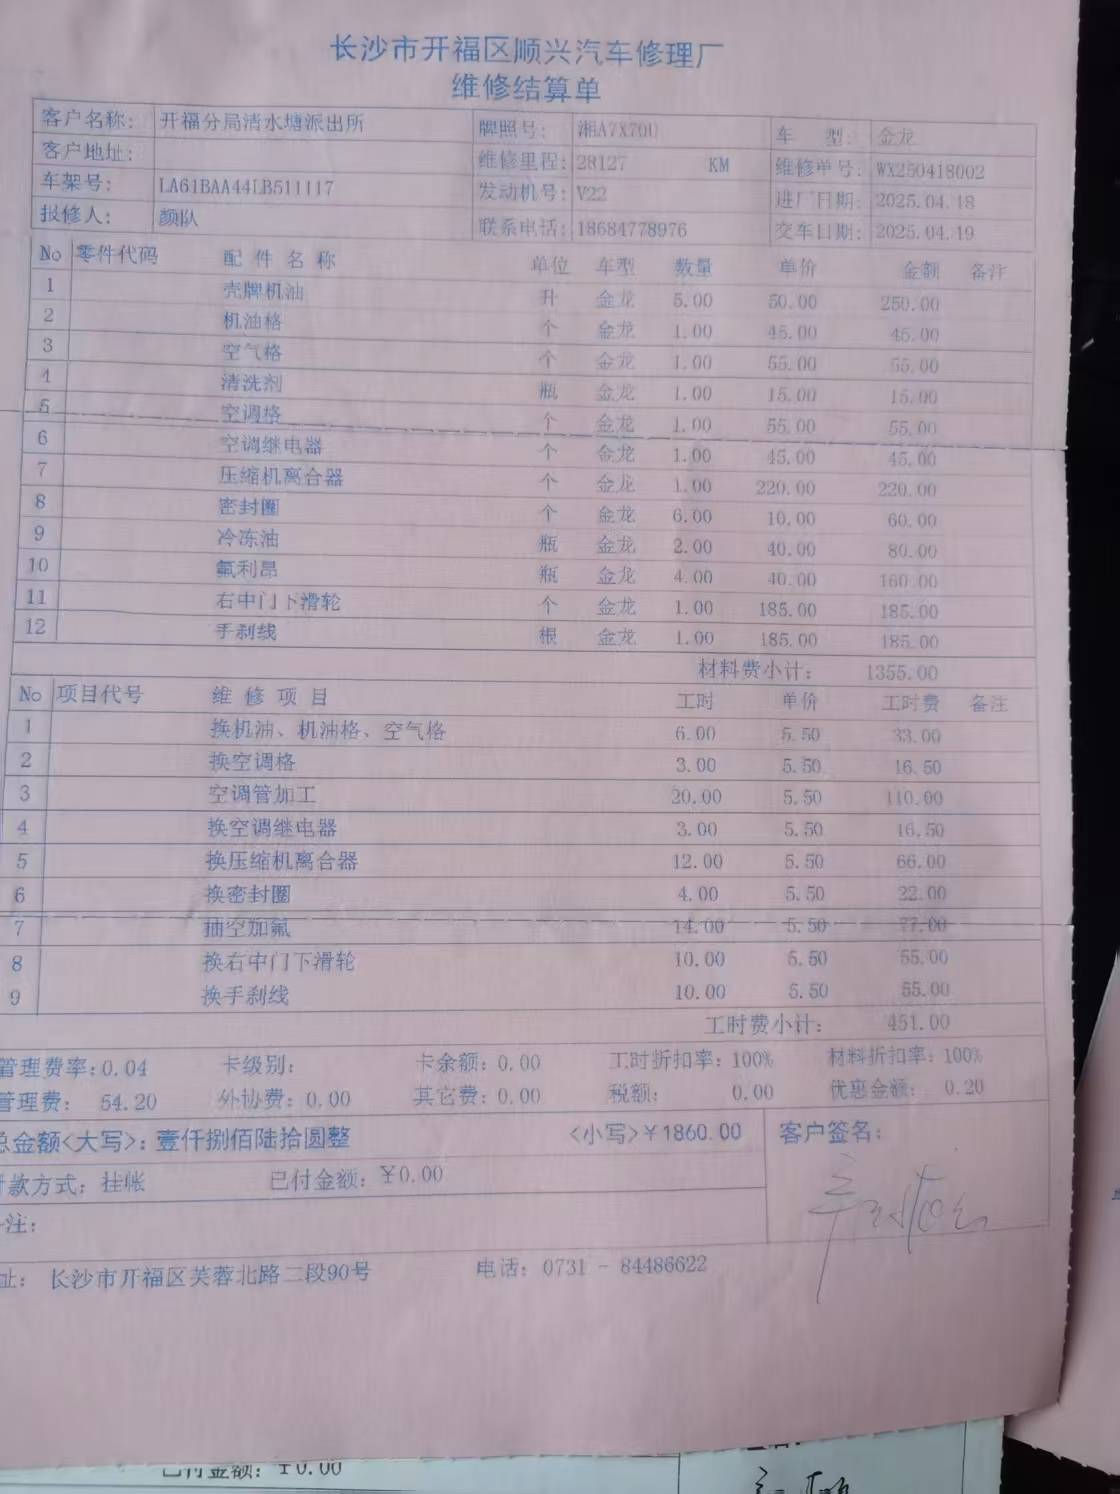 长沙市开福区顺兴汽车修理厂
维修结算单
客户名称: 开福分局清水塘派出所 牌照号: 湘A7X70U 车 型: 金龙
客户地址: 维修里程: 28127 KM 维修单号: WX250418002
车架号: LA61BAA44LB511117 发动机号: V22 进厂日期: 2025.04.18
报修人: 颜队 联系电话: 18684778976 交车日期: 2025.04.19
No 零件代码 配件名称 单位 车型 数量 单价 金额 备注
1 壳牌机油 升 金龙 5.00 50.00 250.00
2 机油格 个 金龙 1.00 45.00 45.00
3 空气格 个 金龙 1.00 55.00 55.00
4 清洗剂 瓶 金龙 1.00 15.00 15.00
5 空调格 个 金龙 1.00 55.00 55.00
6 空调继电器 个 金龙 1.00 45.00 45.00
7 压缩机离合器 个 金龙 1.00 220.00 220.00
8 密封圈 个 金龙 6.00 10.00 60.00
9 冷冻油 瓶 金龙 2.00 40.00 80.00
10 氟利昂 瓶 金龙 4.00 40.00 160.00
11 右中门下滑轮 个 金龙 1.00 185.00 185.00
12 手刹线 根 金龙 1.00 185.00 185.00
材料费小计: 1355.00
No 项目代号 维修项目 工时 单价 工时费 备注
1 换机油、机油格、空气格 6.00 5.50 33.00
2 换空调格 3.00 5.50 16.50
3 空调管加工 20.00 5.50 110.00
4 换空调继电器 3.00 5.50 16.50
5 换压缩机离合器 12.00 5.50 66.00
6 换密封圈 4.00 5.50 22.00
7 抽空加氟 14.00 5.50 77.00
8 换右中门下滑轮 10.00 5.50 55.00
9 换手刹线 10.00 5.50 55.00
工时费小计: 451.00
管理费率:0.04 卡级别: 卡余额: 0.00 工时折扣率: 100% 材料折扣率: 100%
管理费: 54.20 外协费: 0.00 其它费: 0.00 税额: 0.00 优惠金额: 0.20
总金额<大写>: 壹仟捌佰陆拾圆整 <小写>￥1860.00 客户签名:
付款方式: 挂帐 已付金额: ￥0.00
注:
址: 长沙市开福区芙蓉北路二段90号 电话: 0731 - 84486622
已付金额: ￥0.00